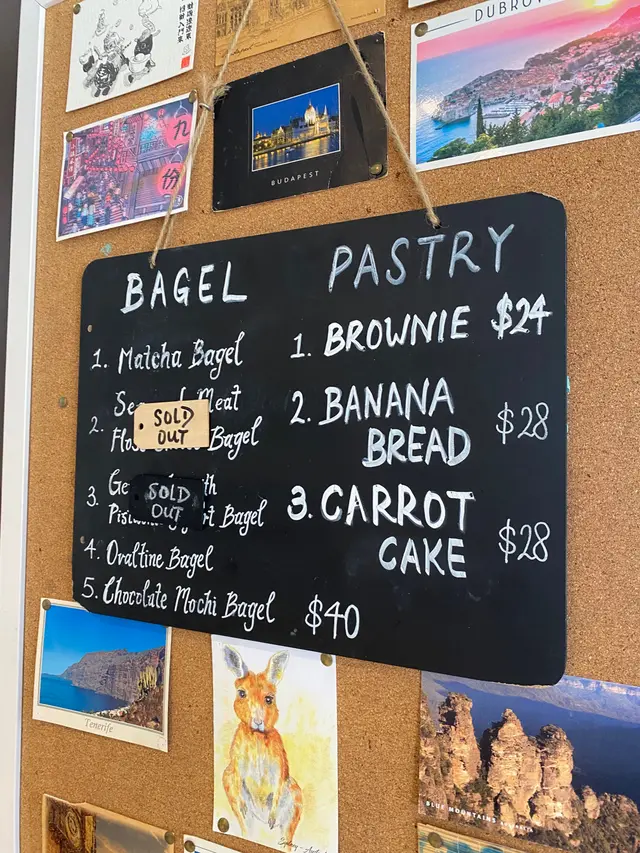 DUBROV
BUDAPEST
九
份
BAGEL
1. Matcha Bagel
2. Meat
Bagel
SOLD
OUT
3.
Bagel
SOLD
OUT
4. Ovaltine Bagel
5. Chocolate Mochi Bagel $40
PASTRY
1. BROWNIE $24
2. BANANA
BREAD $28
3. CARROT
CAKE $28
Tenerife
BLUE MOUNTAINS